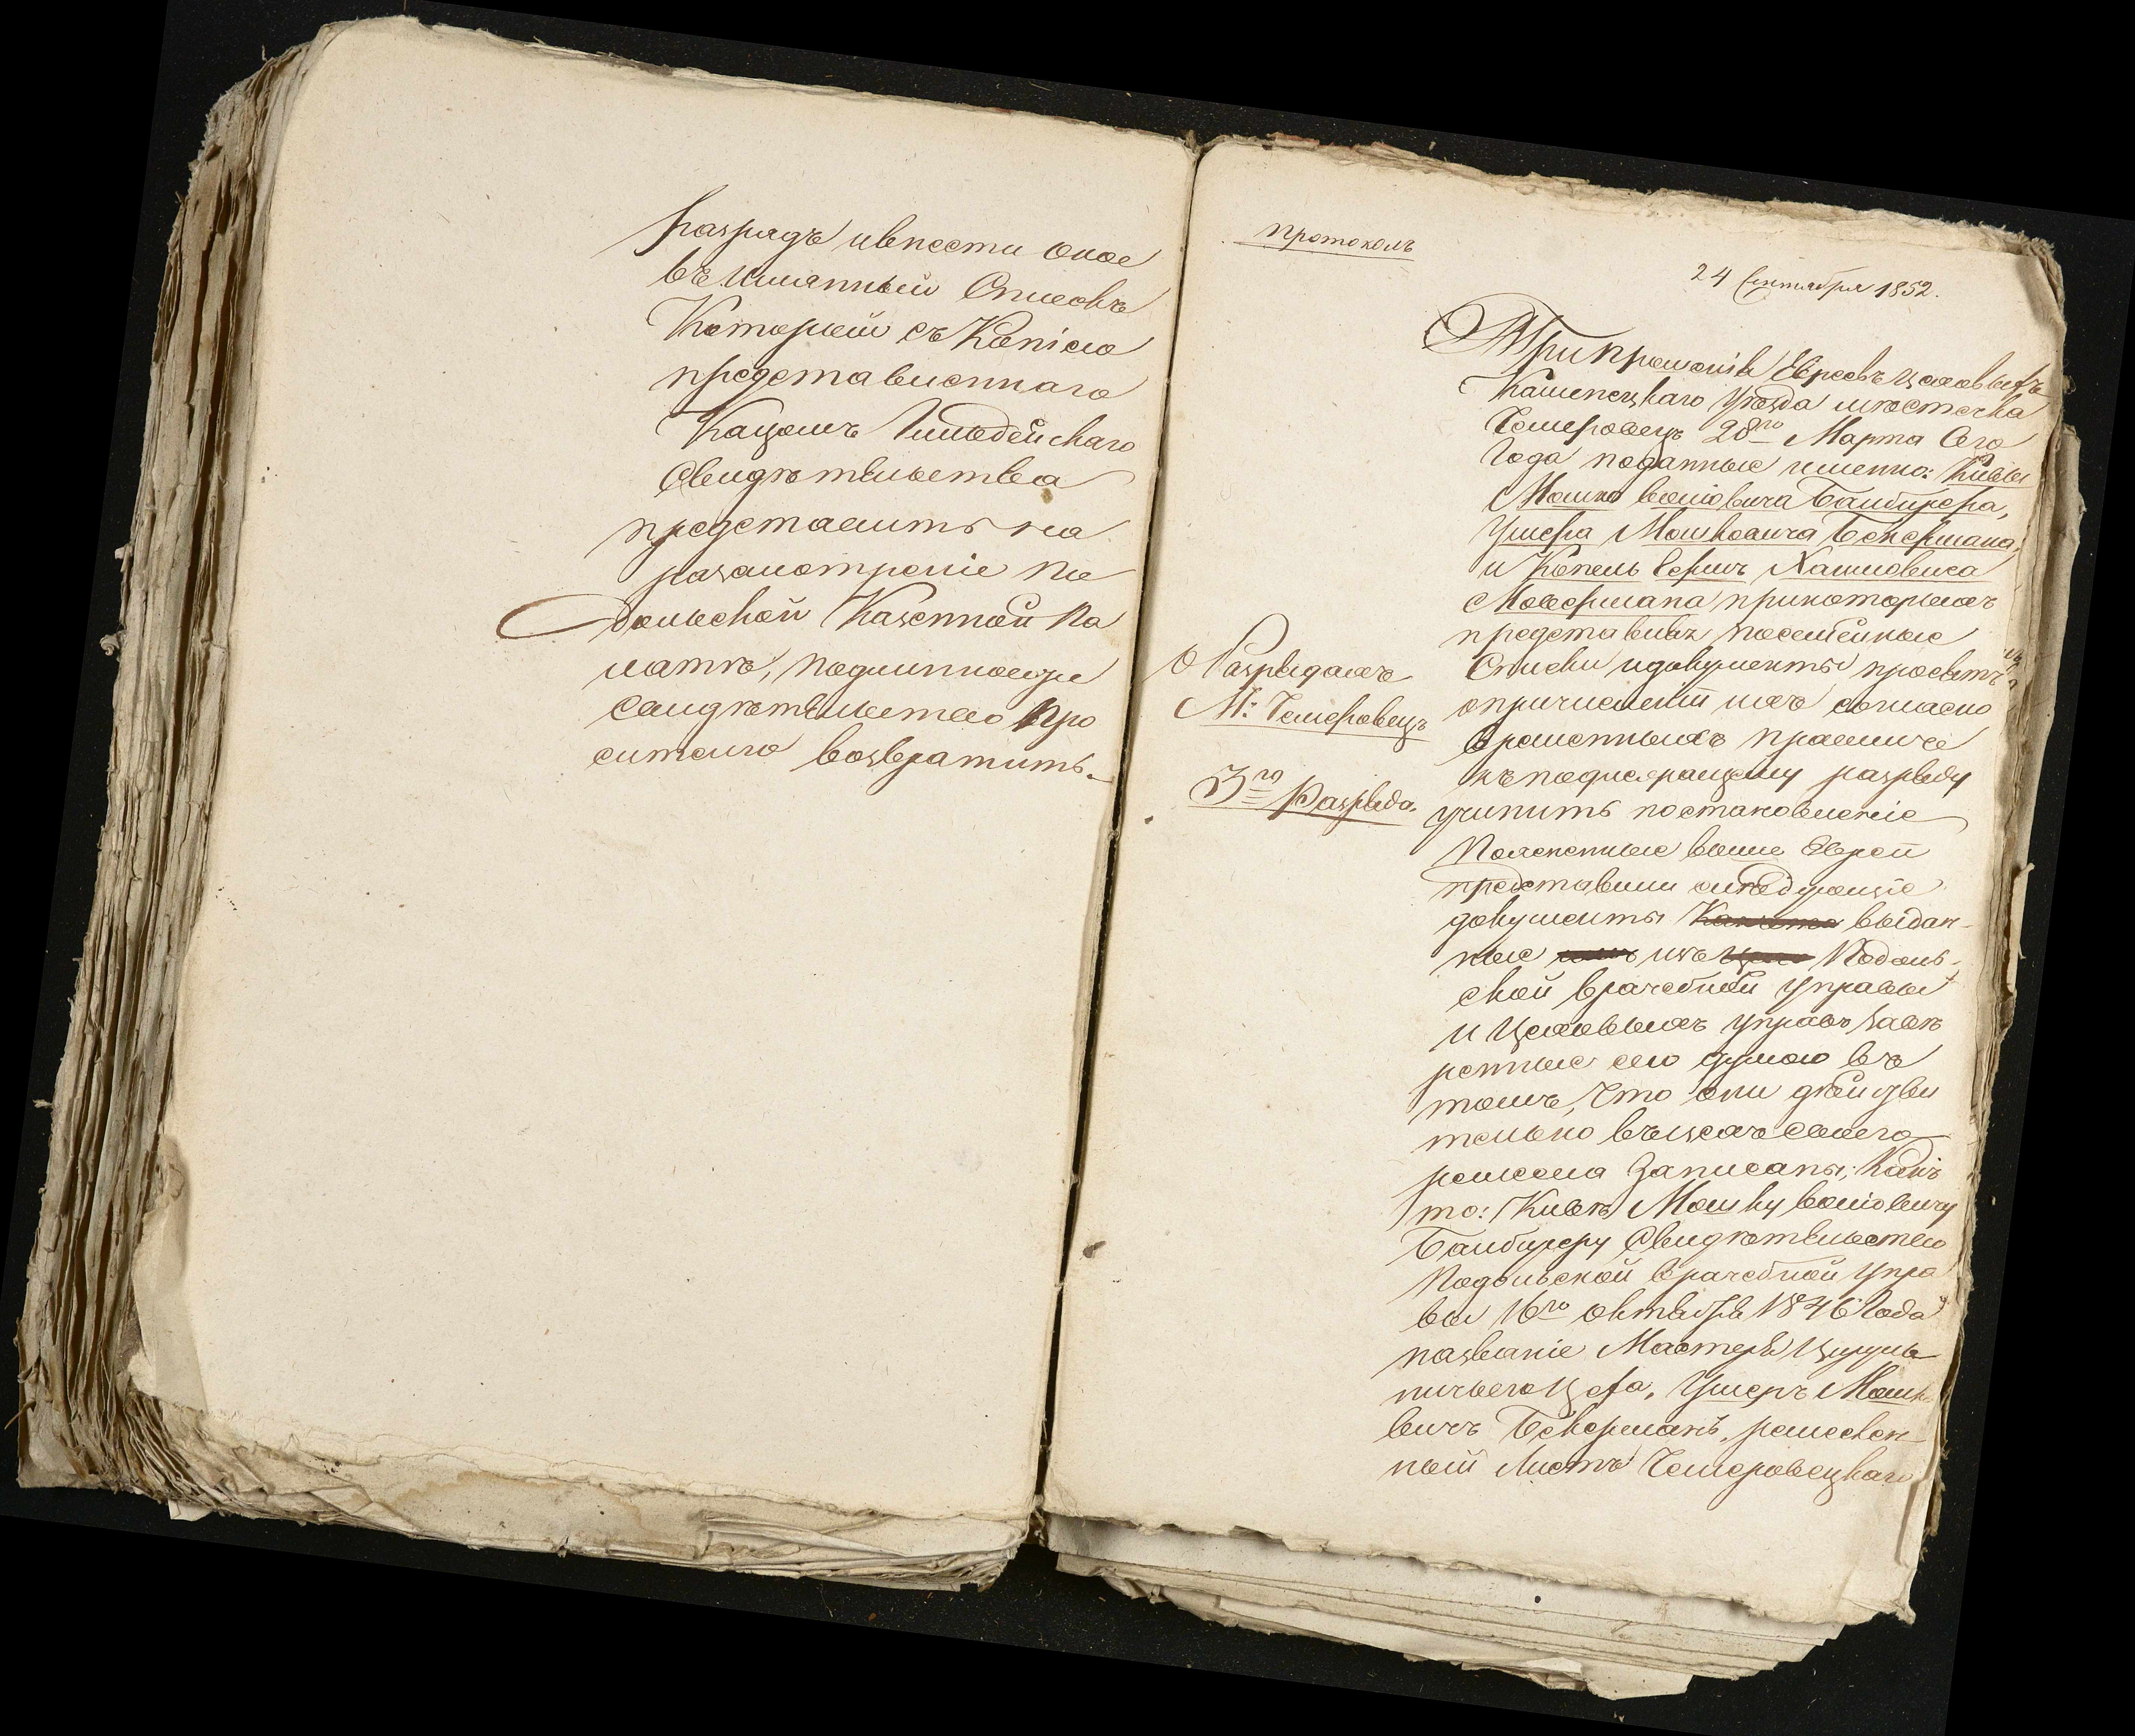 разрядъ и внести оное
въ Имянный Списокъ
Который съ Копіею
представленнаго
Кацомъ Гильдейскаго
Свидѣтельства
представить на
разсмотреніе По
дольской Казенной Па
латѣ, подлинное же
свидѣтельство про
сителю возвратить.
протоколъ
24 Сентября 1852.
При прошеніи Евреевъ цеховыхъ
Каменецкаго Уѣзда мѣстечка
Чемеровецъ 28го Марта Сего
Года поданные именно: Кивы
Мошко Волiовича
Ушера Мошковича Бекермана,
и Копель Берка Хаимовича
при которыхъ
представивъ посемейные
Списки и документы просятъ
о причисленiи ихъ согласно
временныхъ правилъ
О Разрядахъ
М: Чемеровецъ
къ подлежащему разряду
3го Разряда.
учинить постановленіе
Поясненные выше Евреи
представили слѣдующіе
документы выдан-
ные изъ Подоль-
ской врачебной управы
и Цеховыхъ управъ завѣ
ренные сею думою въ
томъ, что они дѣйстви
тельно въ цехъ своего
ремесла Записаны, Какъ
то: Кивѣ Мошку Волiовичу
Свидѣтельство
Подольской врачебной упра
вы 16го октября 1846 Года
названіе Мастера Цируль
ничьего Цеха, Ушеръ Мошк
вичъ Бекерманъ, ремеслен-
ный Листъ Чемеровецкаго